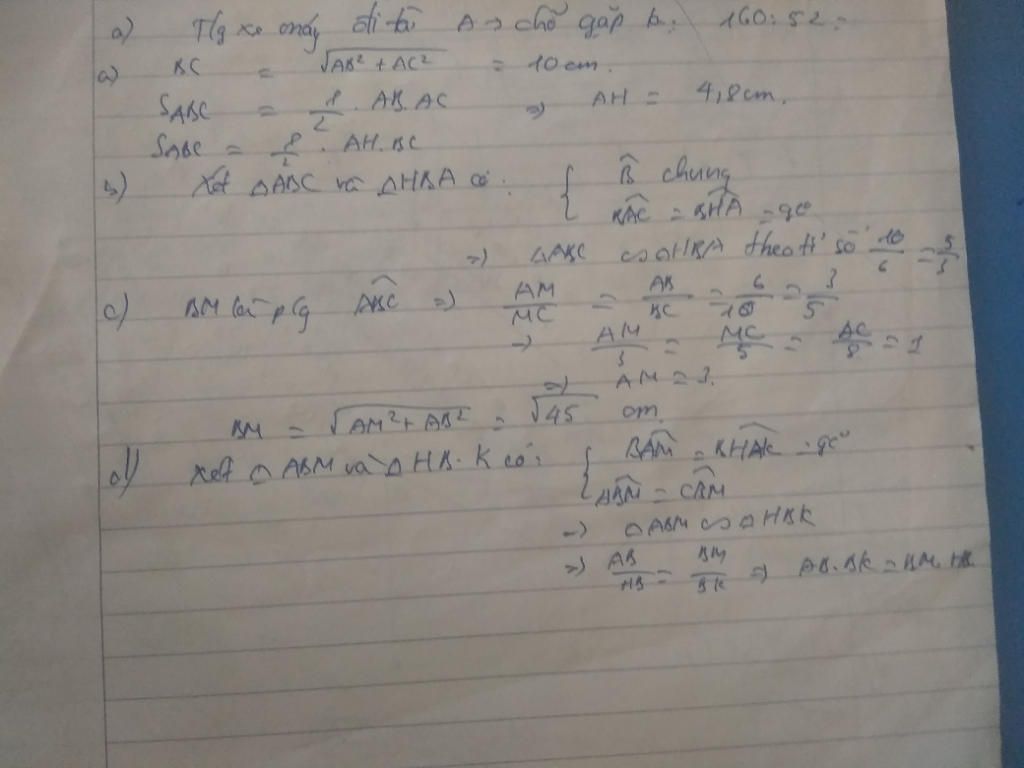 a) Tlg xe máy đi từ A → chỗ gặp k: 160 : 52 =
a) BC = √(AB² + AC²) = 10 cm.
S_ABC = 1/2 . AB . AC => AH = 4,8 cm.
S_ABC = 1/2 . AH . BC
b) Xét △ABC và △HBA có: { B̂ chung
BAC = BHA = 90
=> △ABC ∽ △HBA theo tỉ số 10/6 = 5/3
c) BM là p/g ABC => AM/MC = AB/BC = 6/10 = 3/5
→ AM/3 = MC/5 = AC/8 = 1
=> AM = 3.
BM = √(AM² + AB²) = √45 cm.
d) Xét △ABM và △HB.K có: { BAM = BHAK = 90°
ABM = CBM
→ △ABM ∽ △HBK
=> AB/HB = BM/BK => AB.BK = BM.HB